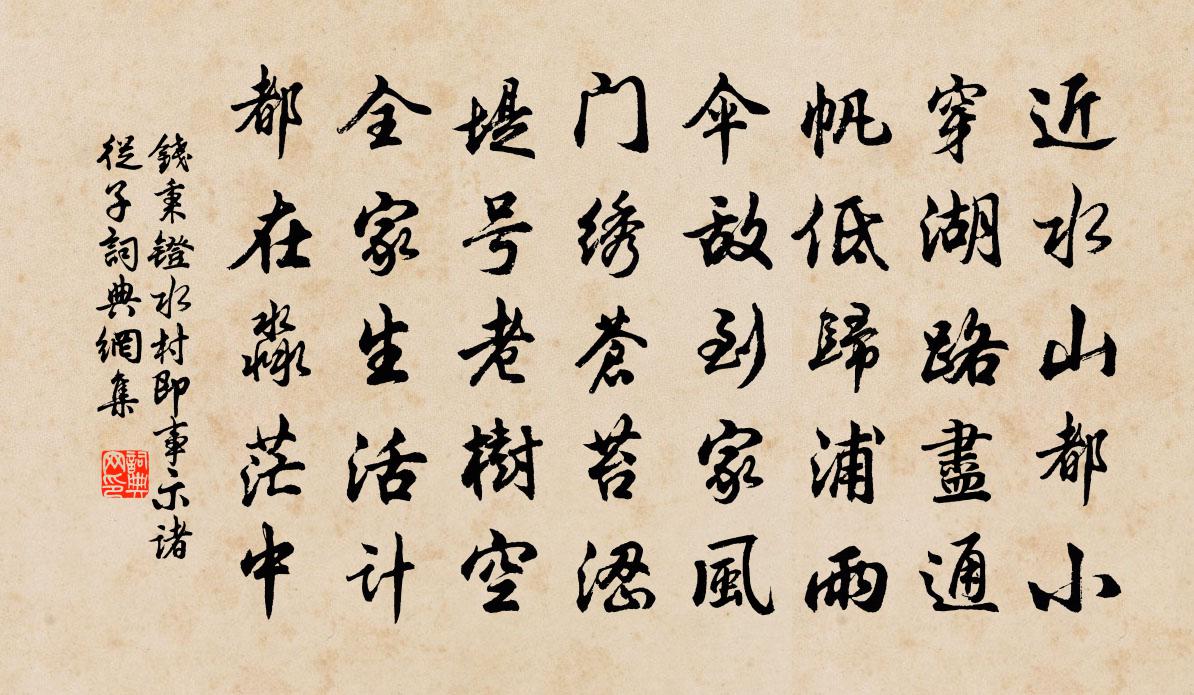 近水山都小
穿湖路盡通
帆低歸浦雨
伞敌到家風
门绣蒼苔澀
堤号老樹空
全家生活计
都在淼茫中
錢秉鐙水村即事示諸
從子詞典網集
詞典
网印